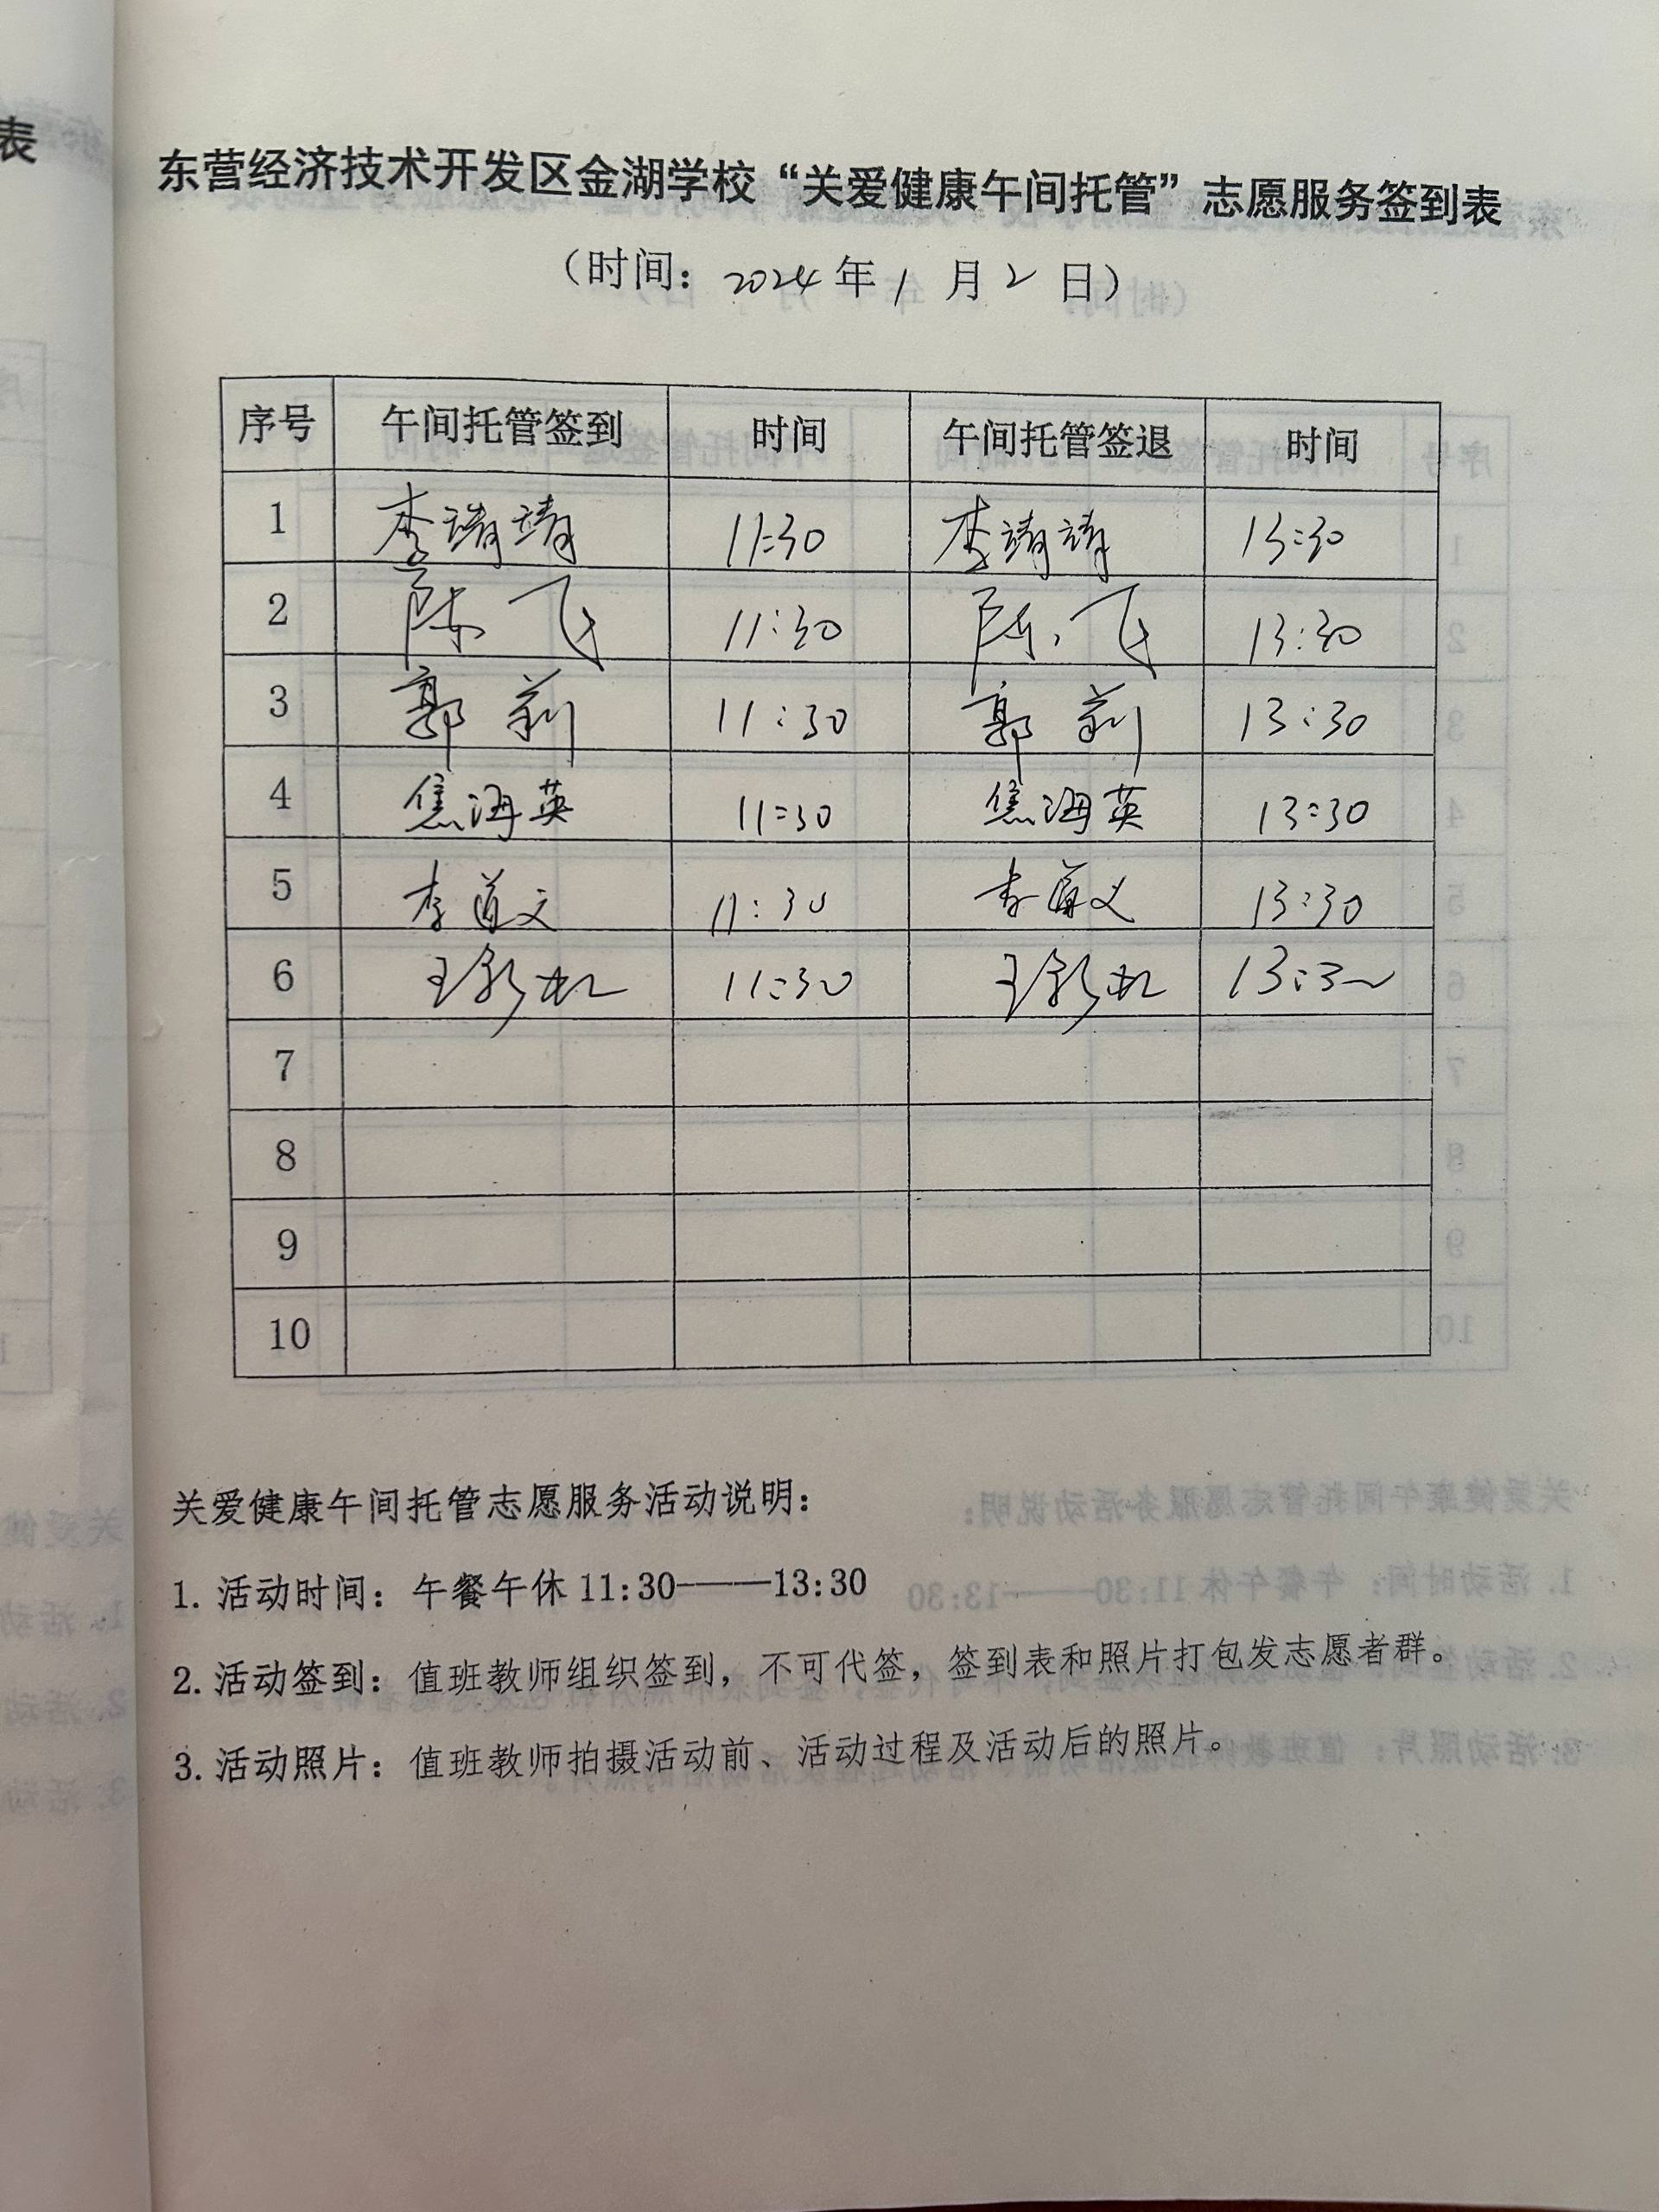 表
东营经济技术开发区金湖学校“关爱健康午间托管”志愿服务签到表
（时间：2024年1月2日）
序号 午间托管签到 时间 午间托管签退 时间
1 李靖靖 11:30 李靖靖 13:30
2 陈飞 11:30 陈飞 13:30
3 郭莉 11:30 郭莉 13:30
4 焦海英 11:30 焦海英 13:30
5 李道文 11:30 李道文 13:30
6 王 11:30 王 13:30
7
8
9
10
关爱健康午间托管志愿服务活动说明：
1. 活动时间：午餐午休 11:30———13:30
2. 活动签到：值班教师组织签到，不可代签，签到表和照片打包发志愿者群。
3. 活动照片：值班教师拍摄活动前、活动过程及活动后的照片。